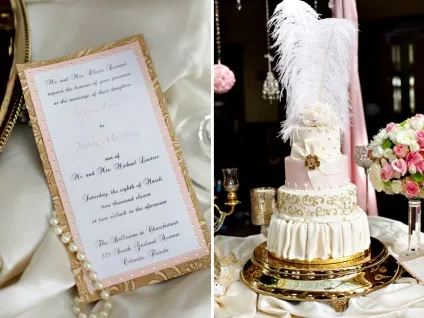 Mr. and Mrs. Oliver
request the honour of your presence
at the marriage of their daughter
to
Jeffrey Matthew
son of
Mr. and Mrs. Michael
Saturday, the eighth of March
two thousand eleven
at two o'clock in the afternoon
The Ballroom at Churchstreet
225 South Garland Avenue
Orlando, Florida